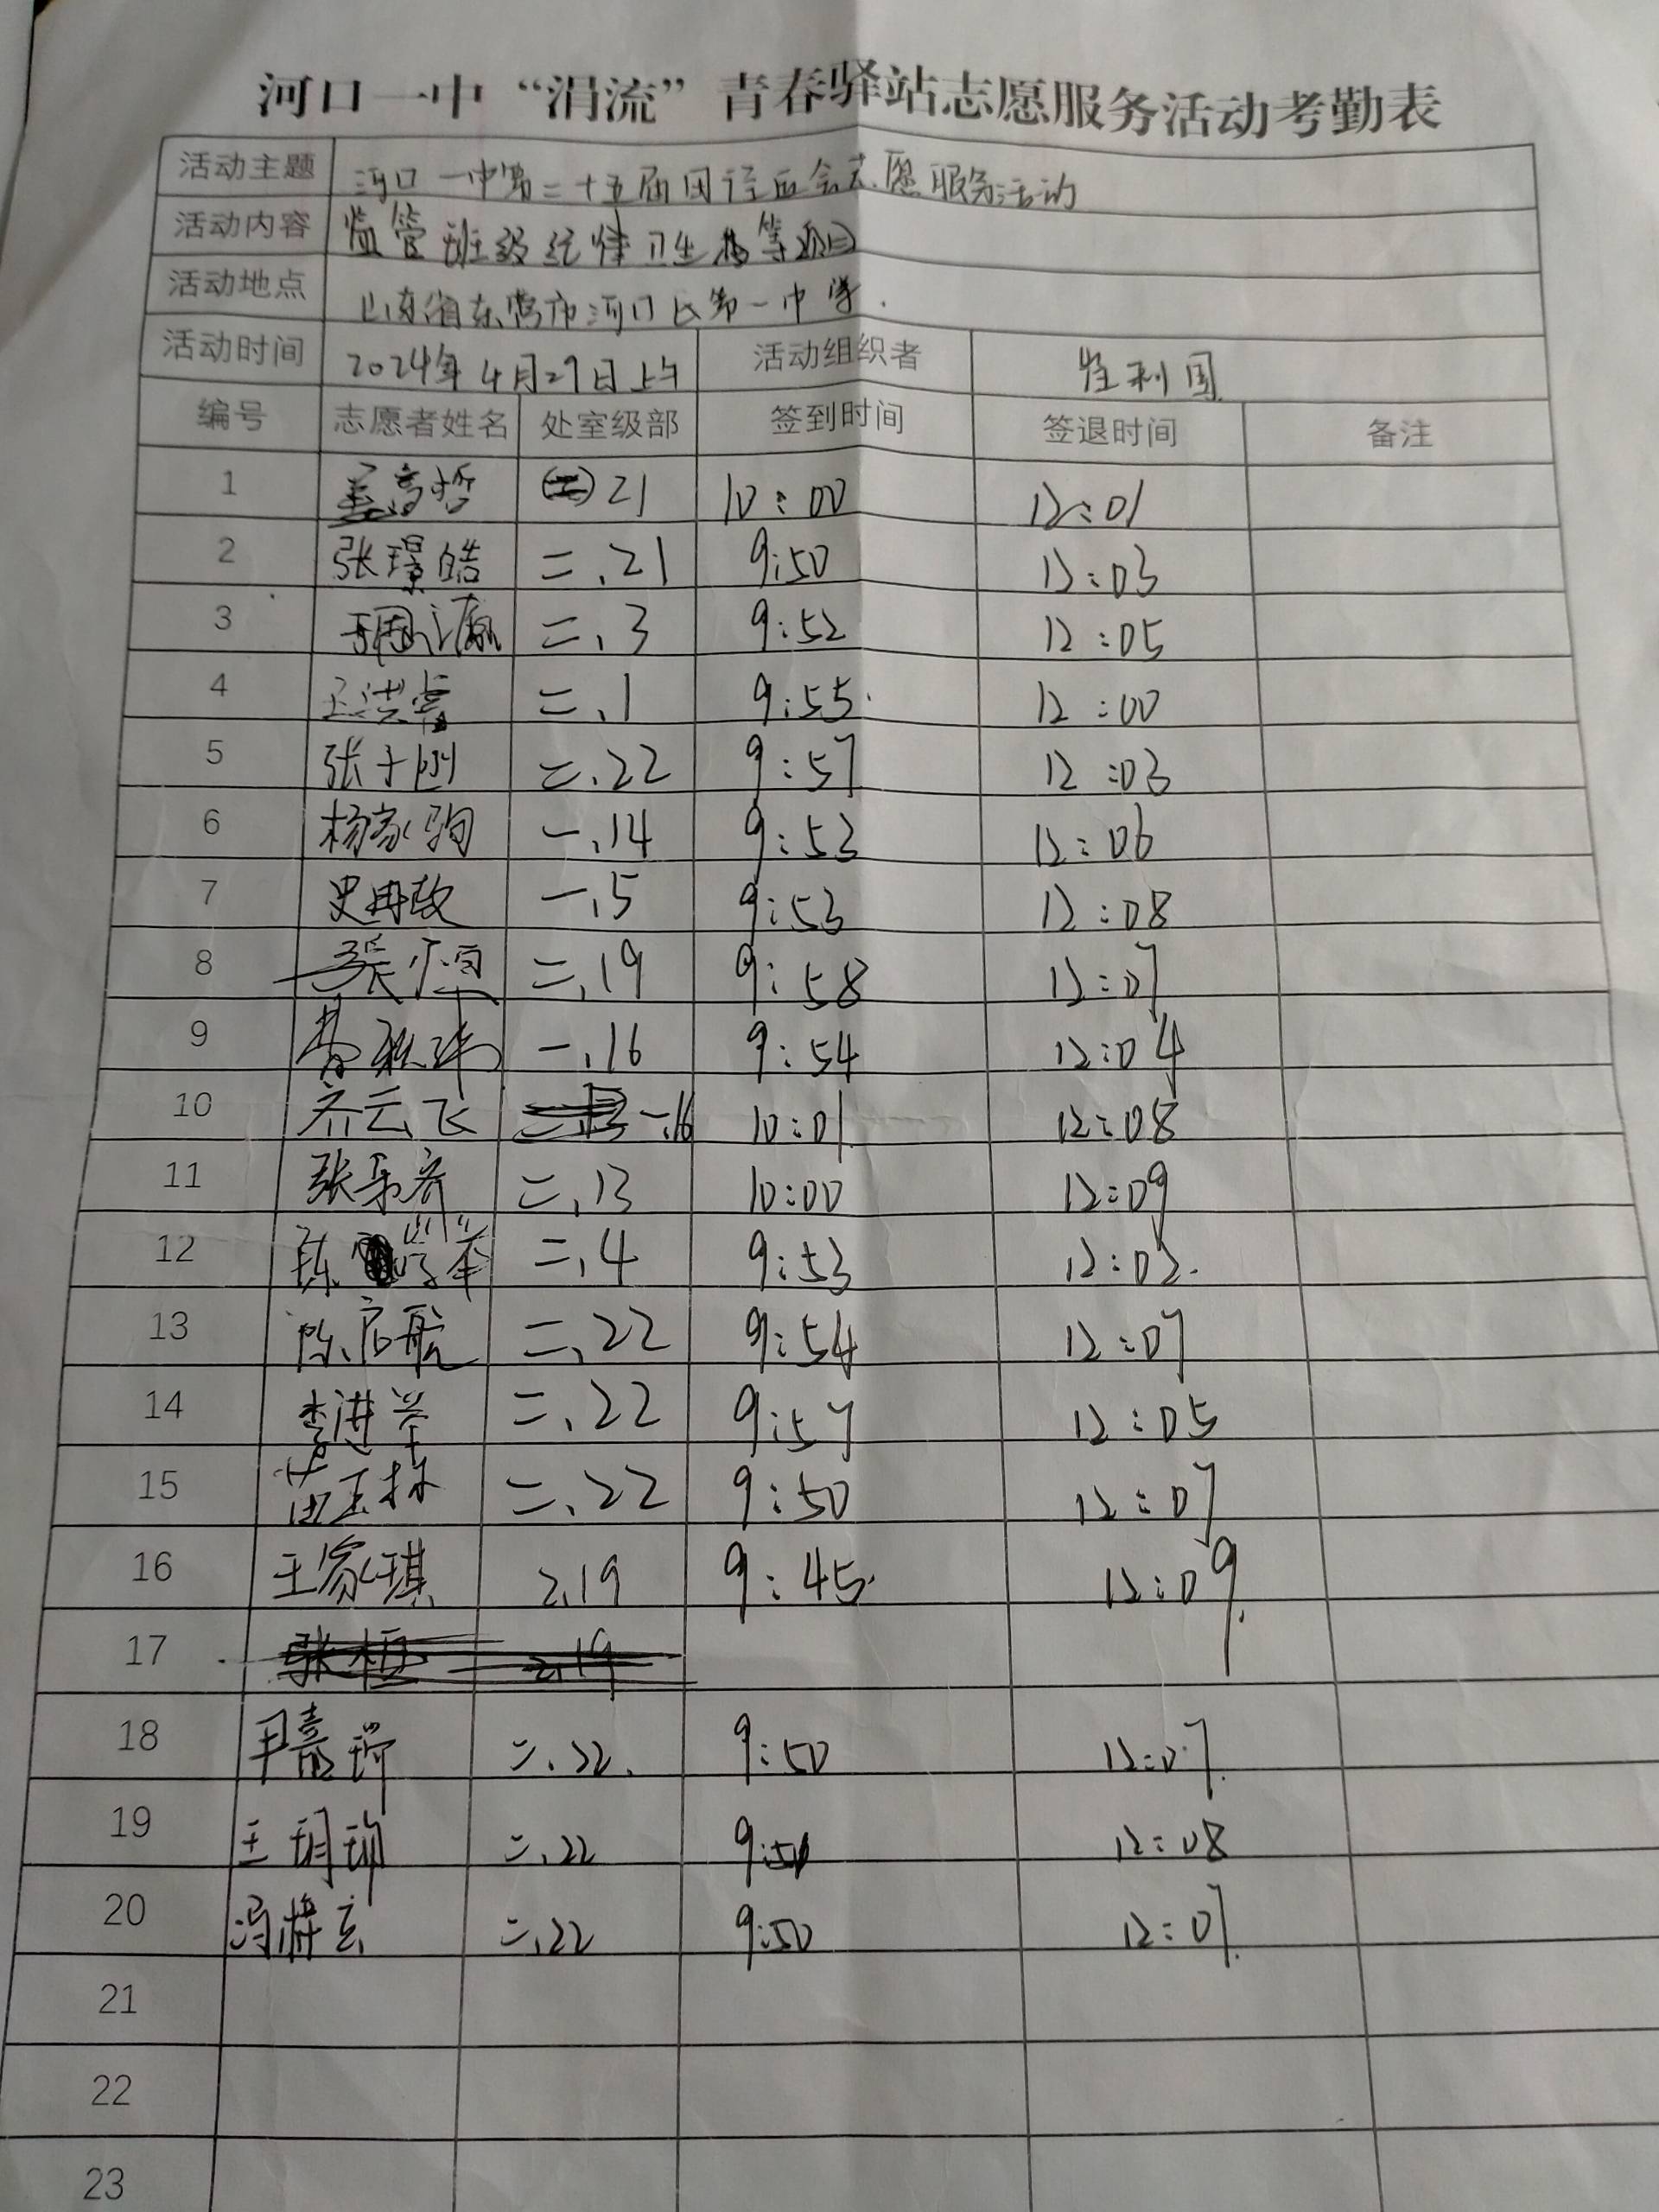 河口一中“涓流”青春驿站志愿服务活动考勤表
活动主题 河口一中第二十五届田径运会志愿服务活动
活动内容 监管班级纪律卫生等项目
活动地点 山东省东营市河口区第一中学.
活动时间 2024年4月29日上午 活动组织者 利国
编号 志愿者姓名 处室级部 签到时间 签退时间 备注
1 21 10:00 12:01
2 张璟皓 二.21 9:50 12:03
3 二.3 9:52 12:05
4 王洪睿 二.1 9:55 12:00
5 张 二.22 9:57 12:03
6 杨家驹 一.14 9:53 12:06
7 史冉政 一.5 9:53 12:08
8 张恒 二.19 9:58 12:07
9 一.16 9:54 12:04
10 齐云飞 一.16 10:01 12:08
11 张乐齐 二.13 10:00 12:09
12 陈 二.4 9:53 12:02
13 陈启航 二.22 9:54 12:07
14 李进举 二.22 9:57 12:05
15 苗玉林 二.22 9:50 12:07
16 王家琪 2.19 9:45 12:09
17 张桓 2.19
18 二.22 9:50 12:07
19 王玥 二.22 9:51 12:08
20 冯 二.22 9:50 12:07
21
22
23